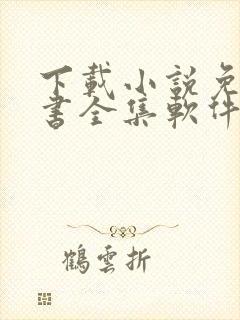 下載小說免
書全集軟件
鶴雲折